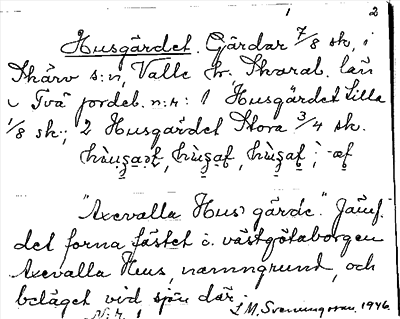 1 2
Husgärdet. Gårdar 7/8 sk, i
Skärv s:n, Valle hr. Skarab. län
Två jordeb. n:r: 1 Husgärdet Lilla
1/8 sk.; 2 Husgärdet Stora 3/4 sk.
"Axevalla Hus' gärde." Jämf.
det forna fästet o. västgötaborgen
Axevalla Hus, namngrund, och
beläget vid sjön där.
N:r 1 S. M. Svenungsson. 1946.